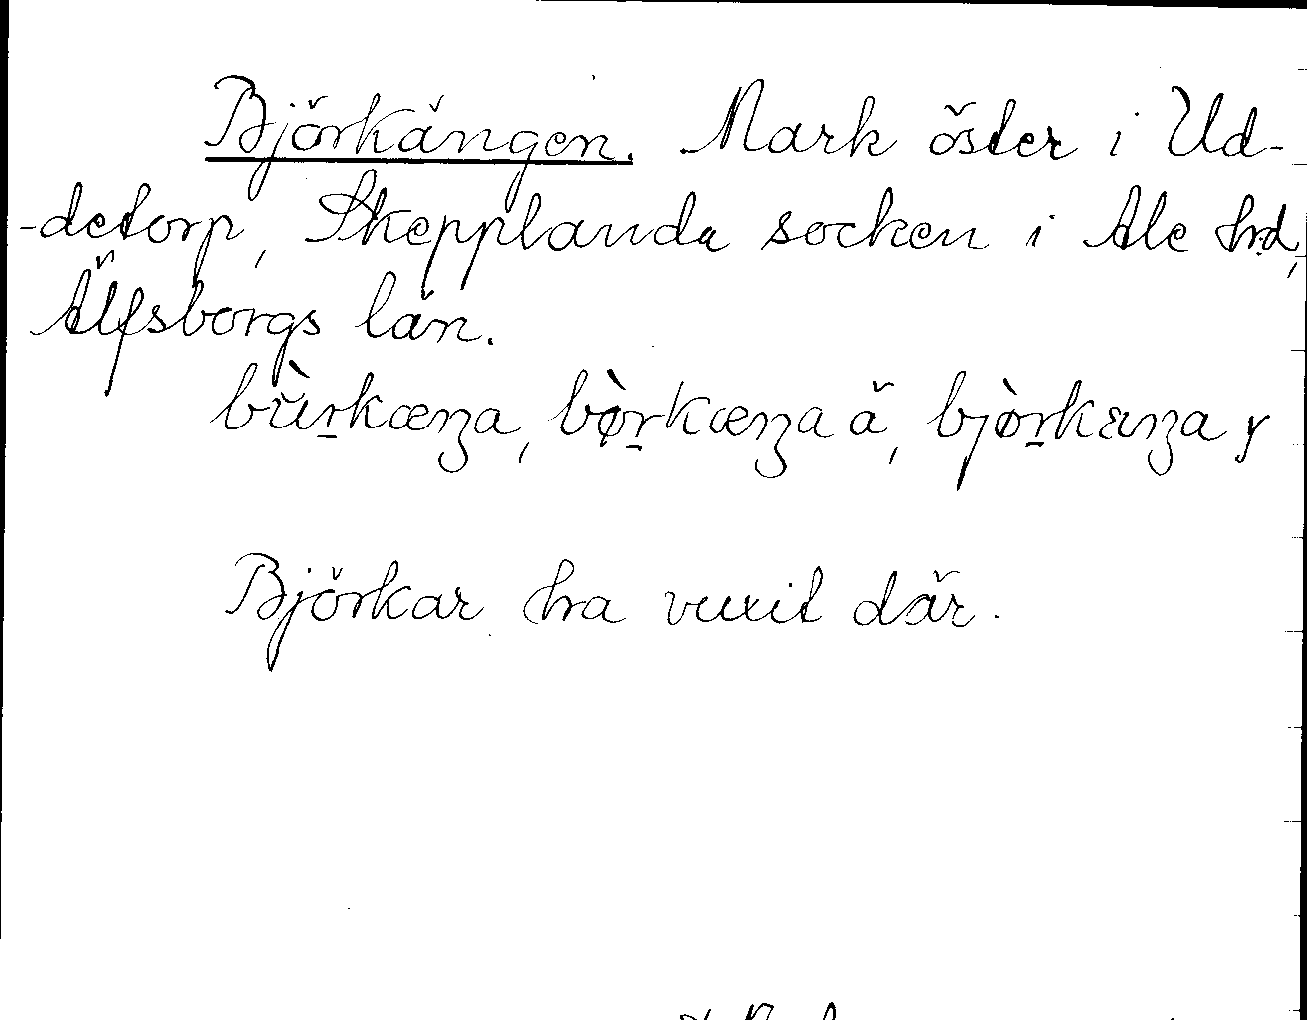 Björkängen. Mark öster i Ud-
-detorp, Skepplanda socken i Ale hd,
Älfsborgs län.
bùrkæŋa, bø̀rkæŋa ä, bjòrkæŋa y
Björkar ha vuxit där.